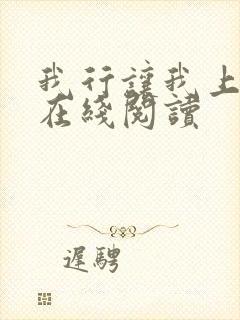 我行讓我上
在綫閱讀
遲騁